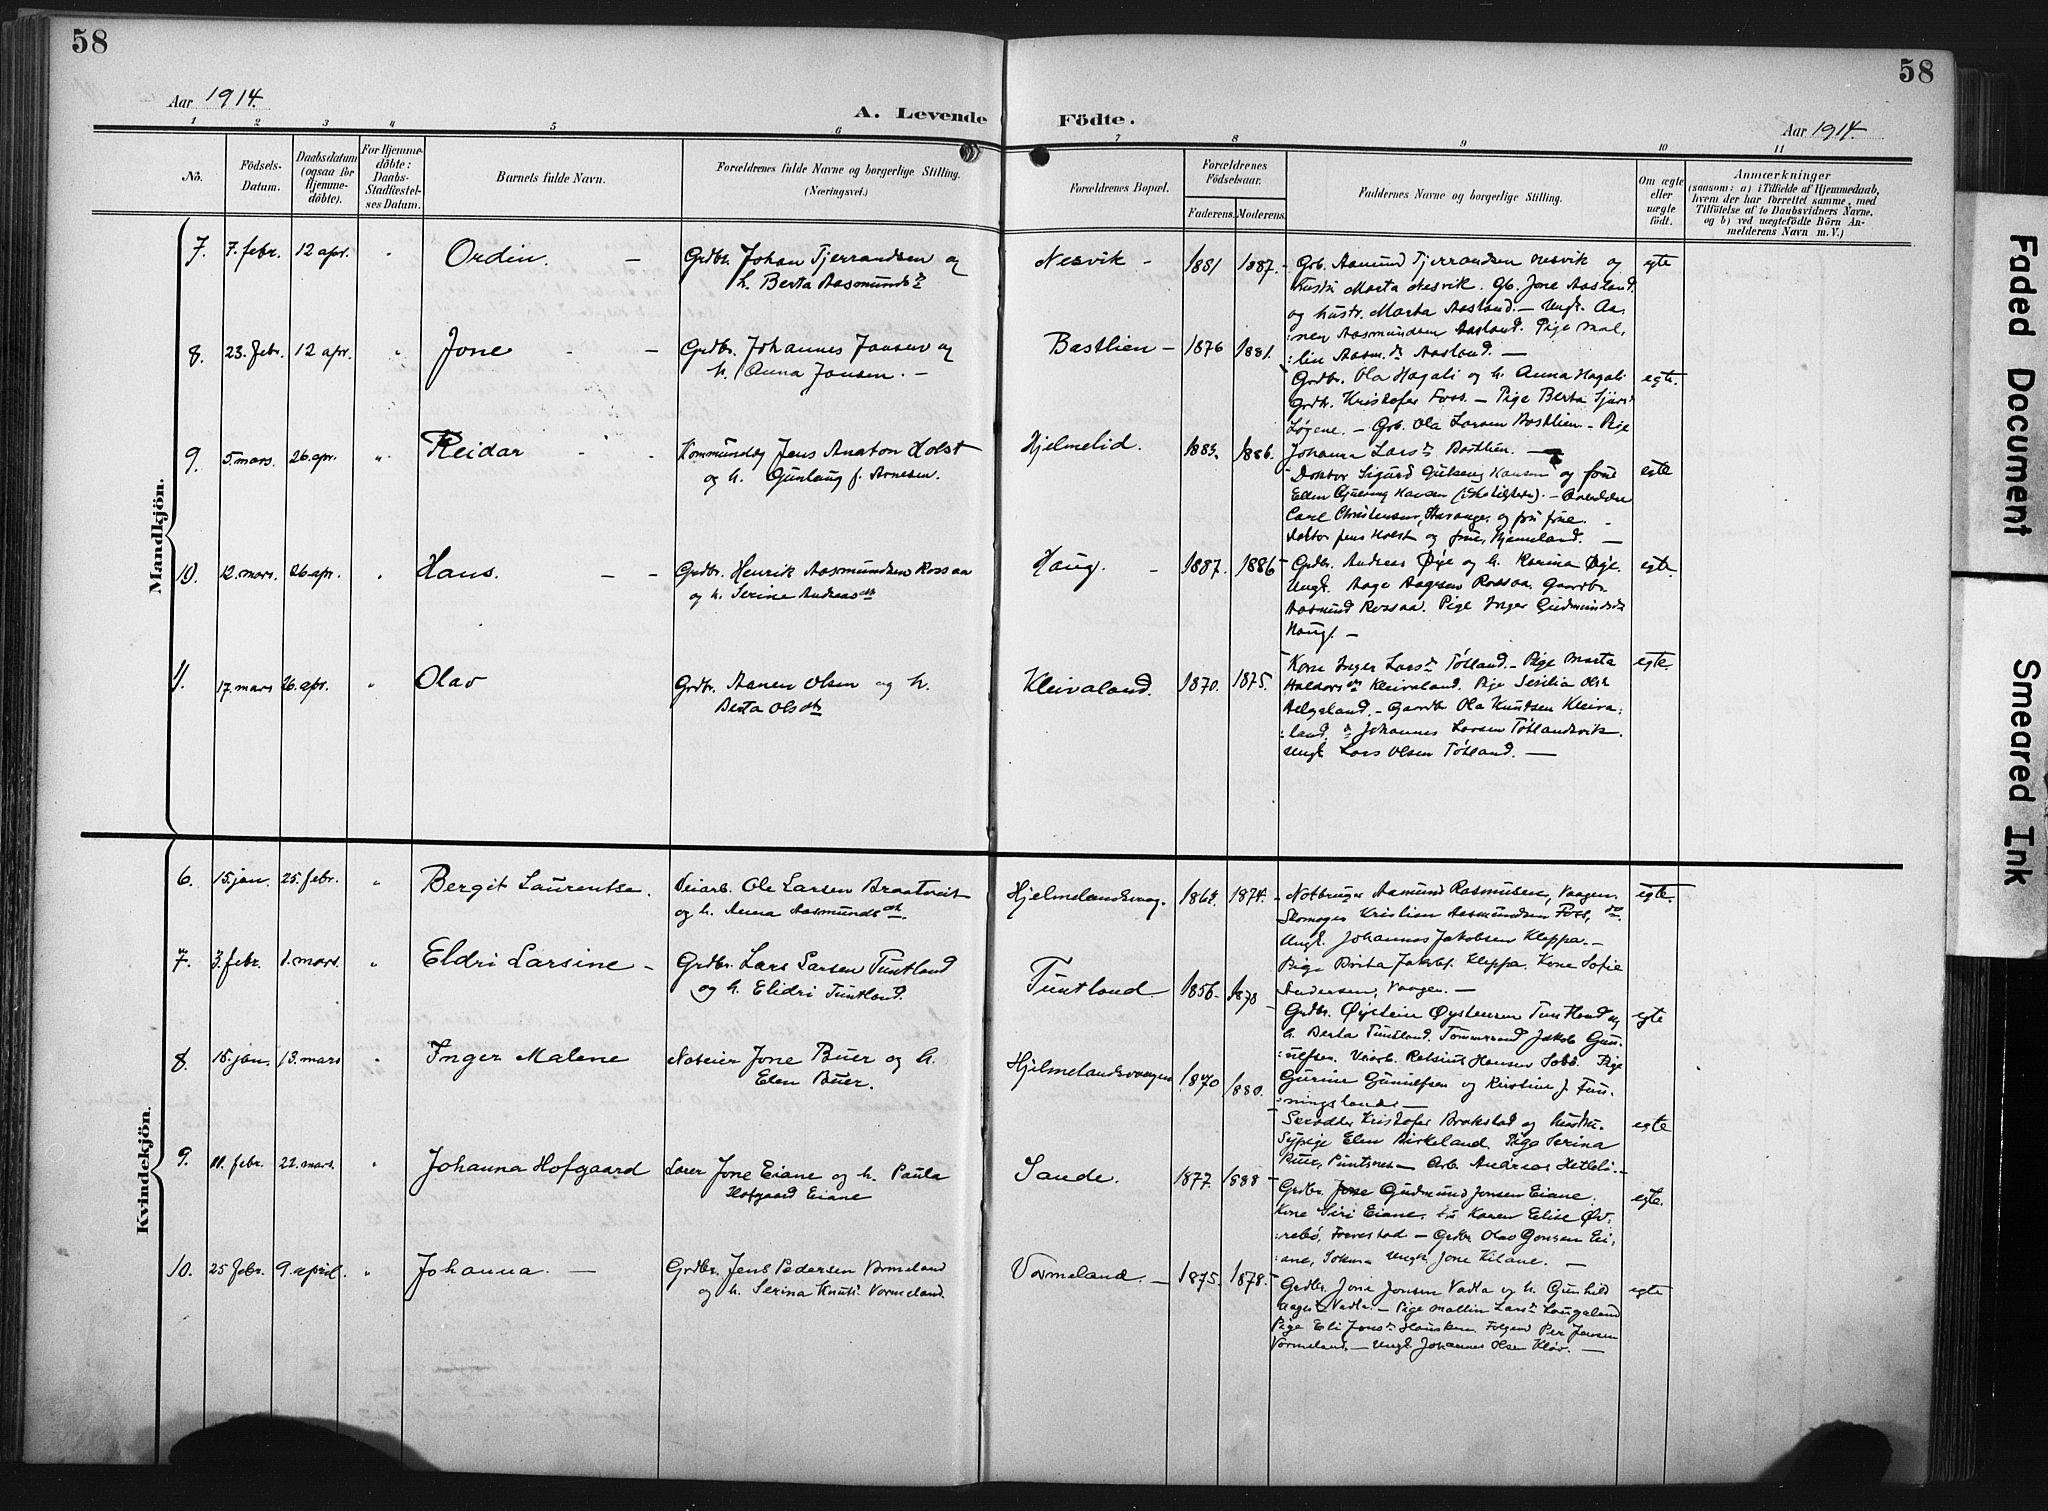 58
58
Aar 1914.
A. Levende Födte.
Aar 1914.
1 2 3 4 5 6 7 8 9 10 11
No.
Födsels-Datum.
Daabsdatum (ogsaa for Hjemme-döbte).
For Hjemme-döbte: Daabs-Stadfæstel-ses Datum.
Barnets fulde Navn.
Forældrenes fulde Navne og borgerlige Stilling. (Næringsvei.)
Forældrenes Bopæl.
Forældrenes Födselsaar.
Faderens. Moderens.
Faddernes Navne og borgerlige Stilling.
Om ægte eller uægte födt.
Anmærkninger
(saasom: a) i Tilfælde af Hjemmedaab, hvem der har forrettet samme, med Tilföielse af to Daabsvidners Navne, og b) ved uægtefödte Börn An-melderens Navn m. V.)
Mandkjön.
7. 7. febr. 12 apr. " Ordin. — Grdbr. Johan Tjerrandsen og
h. Berta Aasmundsdr
Nesvik - 1881 1887.
Grb. Aamund Tjerrandsen Nesvik og
hustru Marta Nesvik. Gb. Jone Aasland
og hustr. Marta Aasland. — Ungk. Aa-
:nen Aasmundsen Aasland. Pige Mal-
:lin Aasm.dr Aasland. —
egte
8. 23. febr. 12 apr. " Jone - — Grdbr. Johannes Jonsen og
h. Anna Jonsen. —
Bastlien - 1876 1881.
Grdbr. Ola Hagali og h. Anna Hagali
Grdbr. Kristofer Foss. — Pige Berta
— Grb. Ola Larsen Bastlien. — Pige
Johanna Larsdr Bastlien. —
egte.
9. 5. mars. 26. apr. " Reidar - - Jens Anaton Holst
og h. Gunlaug f. Arnesen.
Hjelmelid. 1886.
Doktor Sigurd Hansen og frue
Ellen Hansen
Carl Christensen, Stavanger og frue. —
Doktor Jens Holst og frue, Hjelmeland. —
egte
10. 12. mars. 26 apr. " Hans. — - Grdbr. Henrik Aasmundsen Rossaa
og h. Serine Andreasdtr
Haug. - 1887. 1886
Grdbr. Andreas Øye og h. Karina Øye.
Ungk. Aage Aagesen Rossaa. Gaardbr.
Aasmund Rossaa. Pige Inger Gudmundsdr
Haug. —
egte.
11. 17. mars 26. apr. " Olav Grdbr. Aanen Olsen og h.
Berta Olsdtr
Kleivaland. 1870. 1875.
Kone Inger Larsdr Tøtland. — Pige Marta
Haldorsdtr Kleivaland. Pige Sesilia Olsdr
Helgaland. — Gaardbr. Ola Knutsen Kleiva-
:land. Johannes Larsen Tøtlandsvik.
Ungk. Lars Olsen Tøtland. —
egte.
Kvindekjön.
6. 15. jan. 25. febr. " Bergit Laurentse. Veiarb. Ole Larsen Braatveit
og h. Anna Aasmundsdtr.
Hjelmelandsvaag. 1874.
Notbruger Aamund Rasmussen, Vaagen.
Skomager Kristian Aasmundsen Foss, do.
Ungk. Johannes Jakobsen Kleppa. —
Pige Brita Jakobs. Kleppa. Kone Sofie
Andersen, Vaagen. —
egte.
7. 3. febr. 1. mars. " Eldri Larsine — Grdbr. Lars Larsen Tuntland
og h. Elidri Tuntland.
Tuntland. 1856.
Grdbr. Øystein Øysteinsen Tuntland og
h. Berta Tuntland. Tømmermand Jakob Gun-
:ulfsen. Veiarb. Hansen Pige
Gurine Gunulfsen og Kristine J. Fun-
:ningsland. —
egte
8. 15. jan. 13. mars " Inger Malene Notbruger Jone Buer og h.
Elen Buer.
Hjelmelandsvaagen 1870 1880.
Kristofer Brakstad og hustru.
Sypige Elen Birkeland. Pige Serina
Buer, Puntsnes — Arb. Andreas Hetleli. —
egte
9. 11. febr. 22. mars. " Johanna Hofgaard Lærer Jone Eiane og h. Paula
Hofgaard Eiane
Sande. 1877. 1888
Grdbr. Gudmund Jonsen Eiane.
Kone Siri Eiane. Karen Elise Øv-
:rebø, — Grdbr. Olav Gonsen Ei-
:ane, Ungk. Jone Eiane. —
egte.
10. 25 febr. 9. april. " Johanna. — Grdbr. Jens Pedersen Vormeland
og h. Serina Knuts. Vormeland.
Vormeland. — 1875. 1878.
Grdbr. Jone Jonsen Vadla og h. Gunhild
Vadla. — Pige Mallin Larsdr Laugaland
Pige Eli Jonsdr Hausken. Per Jensen
Vormeland. — Ungk. Johannes Olsen Kløv. —
egte
Faded Document
Smeared Ink